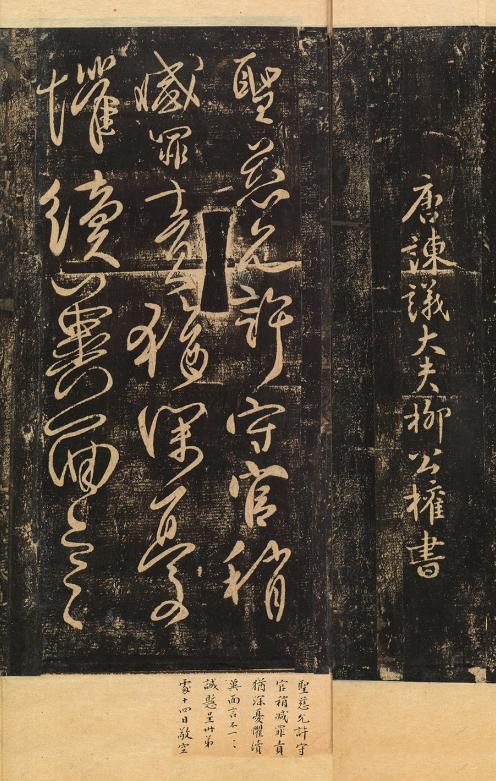 唐諫議大夫柳公權書
聖慈允許守官稍
減罪責猶深憂
懼續冀面言
聖慈允許守
官稍減罪責
猶深憂懼續
冀面言不一〻
誠懸呈卅弟
處十四日敬空